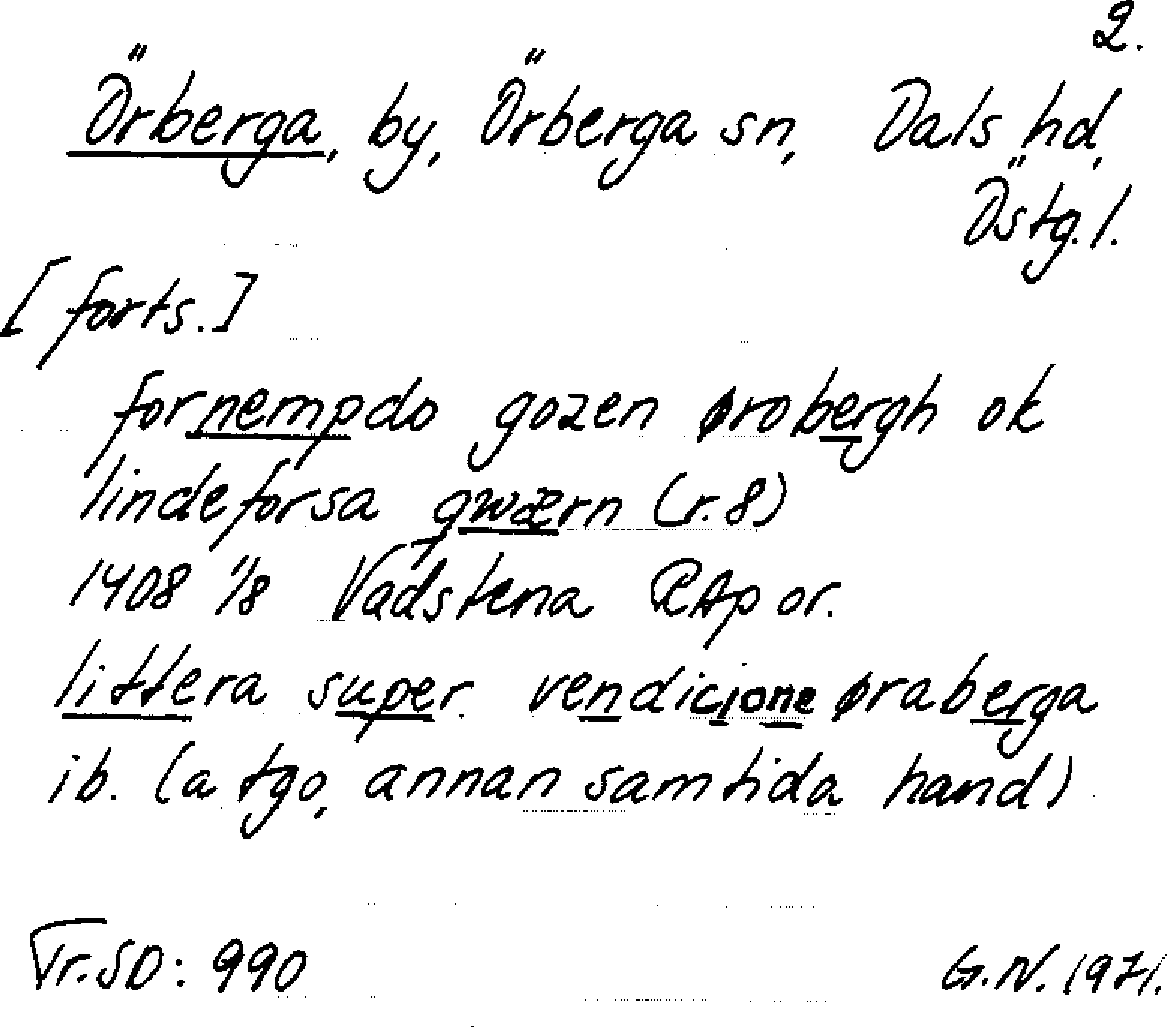 2.
Örberga, by, Örberga sn, Dals hd,
Östg.l.
[forts.]
fornempdo gozen ørobergh ok
lindeforsa qwærn (r.8)
1408 1/8 Vadstena RAp or.
littera super vendicione øraberga
ib. (a tgo, annan samtida hand)
Tr.SD: 990 G.N. 1971.